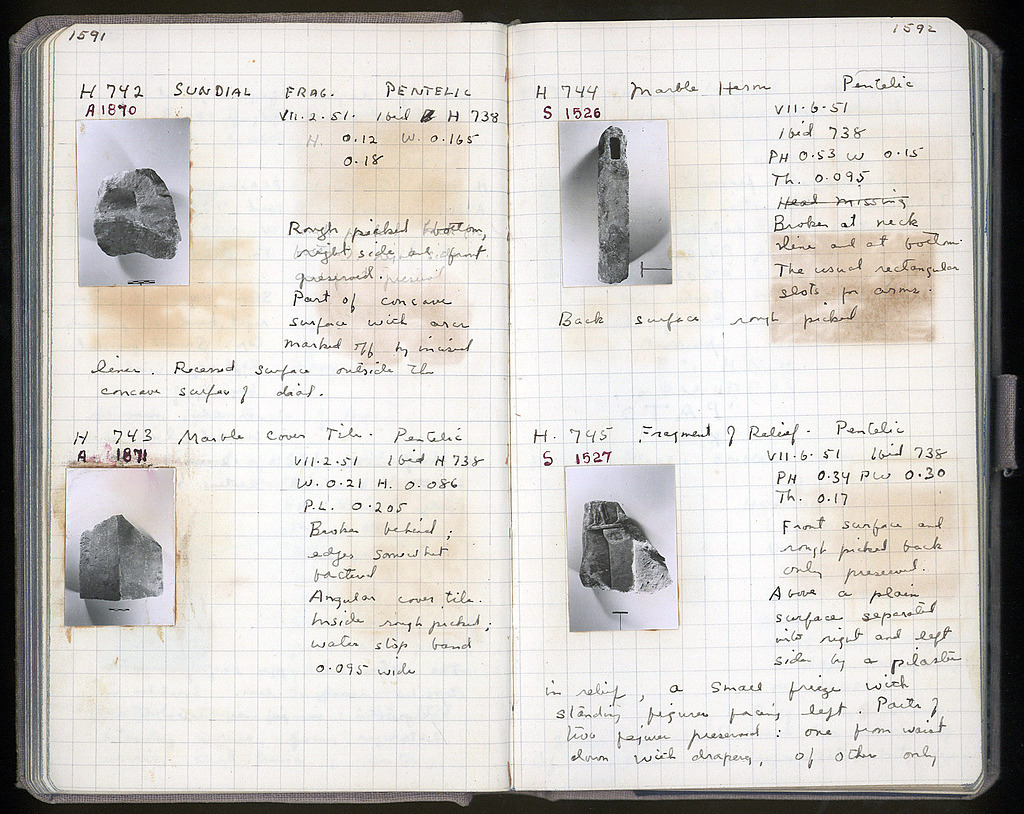 1591
H 742 SUNDIAL FRAG. PENTELIC
A 1870
VII.2.51. Ibid H 738
H. 0.12 W. 0.165
0.18
Rough picked bottom,
right side and front
preserved.
Part of concave
surface with arcs
marked off by incised
lines. Recessed surface outside the
concave surface of dial.
H 743 Marble Cover Tile. Pentelic
A 1871
VII.2.51 Ibid H 738
W. 0.21 H. 0.086
P.L. 0.205
Broken behind;
edges somewhat
battered
Angular cover tile.
Inside rough picked;
water stop band
0.095 wide
1592
H 744 Marble Herm Pentelic
S 1526
VII.6.51
Ibid 738
PH 0.53 W 0.15
Th. 0.095
Head missing
Broken at neck
line and at bottom.
The usual rectangular
slots for arms.
Back surface rough picked
H. 745 Fragment of Relief. Pentelic
S 1527
VII.6.51 Ibid 738
PH 0.34 PW 0.30
Th. 0.17
Front surface and
rough picked back
only preserved.
Above a plain
surface separated
into right and left
sides by a pilaster
in relief, a small frieze with
standing figures facing left. Parts of
two figures preserved: one from waist
down with drapery, of other only